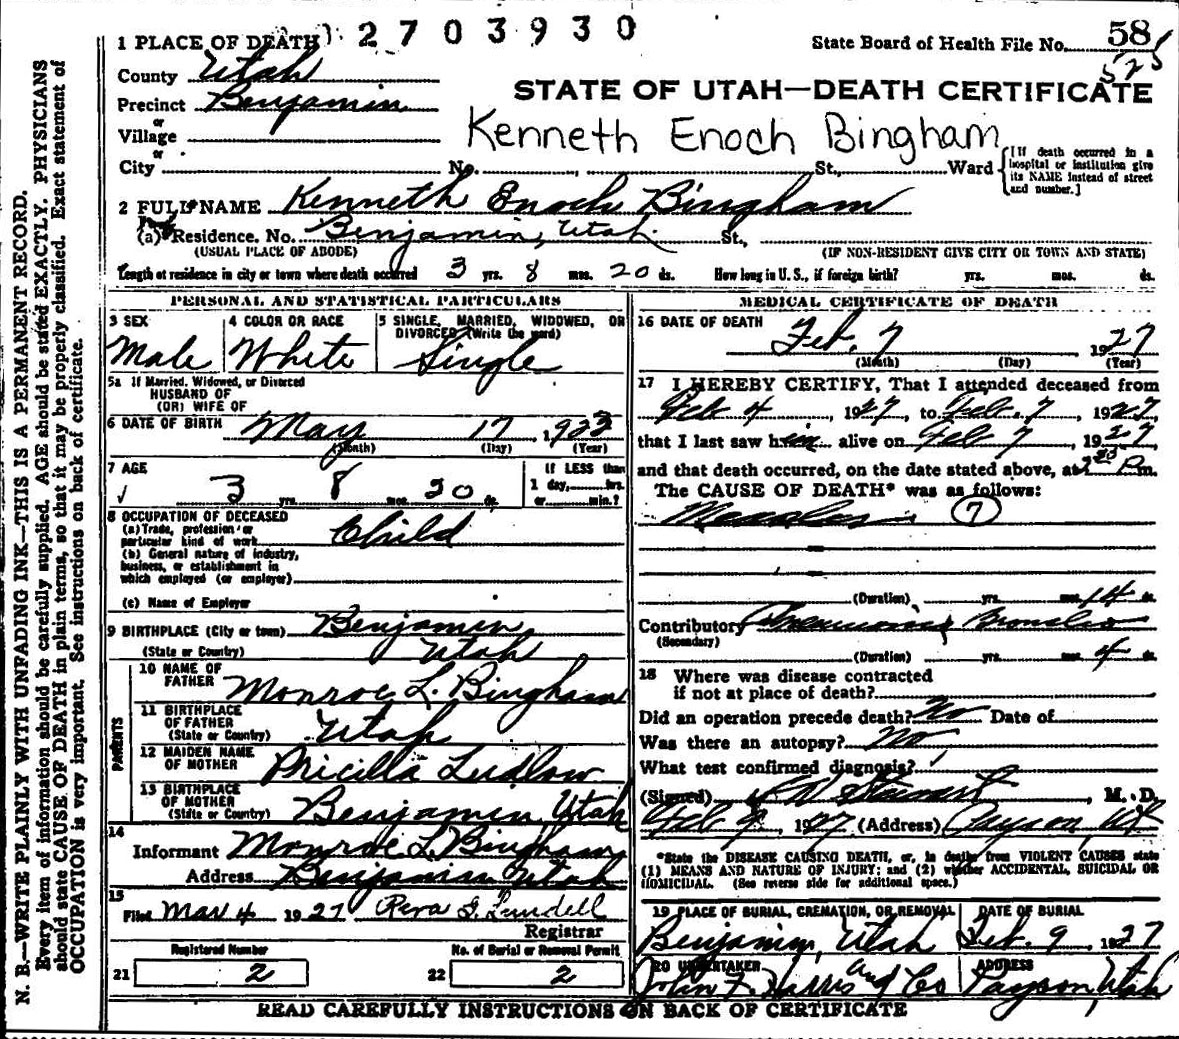 2703930
1 PLACE OF DEATH
State Board of Health File No. 58
525
County Utah
Precinct Benjamin
STATE OF UTAH—DEATH CERTIFICATE
or
Village
Kenneth Enoch Bingham
or
City No. St., Ward
[If death occurred in a hospital or institution give its NAME instead of street and number.]
2 FULL NAME Kenneth Enoch Bingham
(a) Residence. No. Benjamin, Utah St.,
(USUAL PLACE OF ABODE) (IF NON-RESIDENT GIVE CITY OR TOWN AND STATE)
Length of residence in city or town where death occurred 3 yrs. 8 mos. 20 ds. How long in U. S., if foreign birth? yrs. mos. ds.
PERSONAL AND STATISTICAL PARTICULARS
3 SEX Male
4 COLOR OR RACE White
5 SINGLE, MARRIED, WIDOWED, OR DIVORCED (Write the word) Single
5a If Married, Widowed, or Divorced
HUSBAND OF
(OR) WIFE OF
6 DATE OF BIRTH May 17, 1923
(Month) (Day) (Year)
7 AGE
3 yrs. 8 mos. 20 ds.
If LESS than
1 day, hrs.
or min.?
8 OCCUPATION OF DECEASED
(a) Trade, profession or
particular kind of work Child
(b) General nature of industry,
business, or establishment in
which employed (or employer)
(c) Name of Employer
9 BIRTHPLACE (City or town) Benjamin,
(State or Country) Utah
PARENTS
10 NAME OF
FATHER Monroe L. Bingham
11 BIRTHPLACE
OF FATHER
(State or Country) Utah
12 MAIDEN NAME
OF MOTHER Pricilla Ludlow
13 BIRTHPLACE
OF MOTHER
(State or Country) Benjamin, Utah
14
Informant Monroe L. Bingham
Address Benjamin Utah
15
Filed Mar 4 1927 Reva Lundell
Registrar
Registered Number No. of Burial or Removal Permit
21 2 22 2
MEDICAL CERTIFICATE OF DEATH
16 DATE OF DEATH Feb. 7 1927
(Month) (Day) (Year)
17 I HEREBY CERTIFY, That I attended deceased from
Feb 4, 1927, to Feb. 7, 1927
that I last saw him alive on Feb 7, 1927
and that death occurred, on the date stated above, at P m.
The CAUSE OF DEATH* was as follows:
Measles 7
(Duration) yrs. mos. 14 ds.
Contributory Pneumonia Bronchio
(Secondary)
(Duration) yrs. mos. 4 ds.
18 Where was disease contracted
if not at place of death?
Did an operation precede death? No Date of
Was there an autopsy? No
What test confirmed diagnosis?
(Signed) Stewart, M. D.
Feb 9, 1927 (Address) Payson, Ut
*State the DISEASE CAUSING DEATH, or, in deaths from VIOLENT CAUSES state
(1) MEANS AND NATURE OF INJURY; and (2) whether ACCIDENTAL, SUICIDAL OR
HOMICIDAL. (See reverse side for additional space.)
19 PLACE OF BURIAL, CREMATION, OR REMOVAL DATE OF BURIAL
Benjamin, Utah Feb. 9, 1927
20 UNDERTAKER ADDRESS
John F. Harris and Co Payson, Utah
READ CAREFULLY INSTRUCTIONS ON BACK OF CERTIFICATE
N. B.—WRITE PLAINLY WITH UNFADING INK—THIS IS A PERMANENT RECORD.
Every item of information should be carefully supplied. AGE should be stated EXACTLY. PHYSICIANS
should state CAUSE OF DEATH in plain terms, so that it may be properly classified. Exact statement of
OCCUPATION is very important. See instructions on back of certificate.